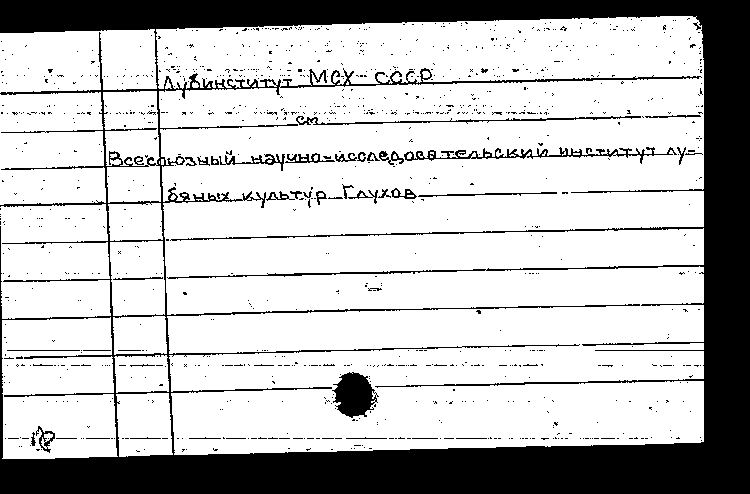 Лубинститут МСХ-СССР
см
Всесоюзный научно-исследовательский институт лу-
бяных культур Глухов